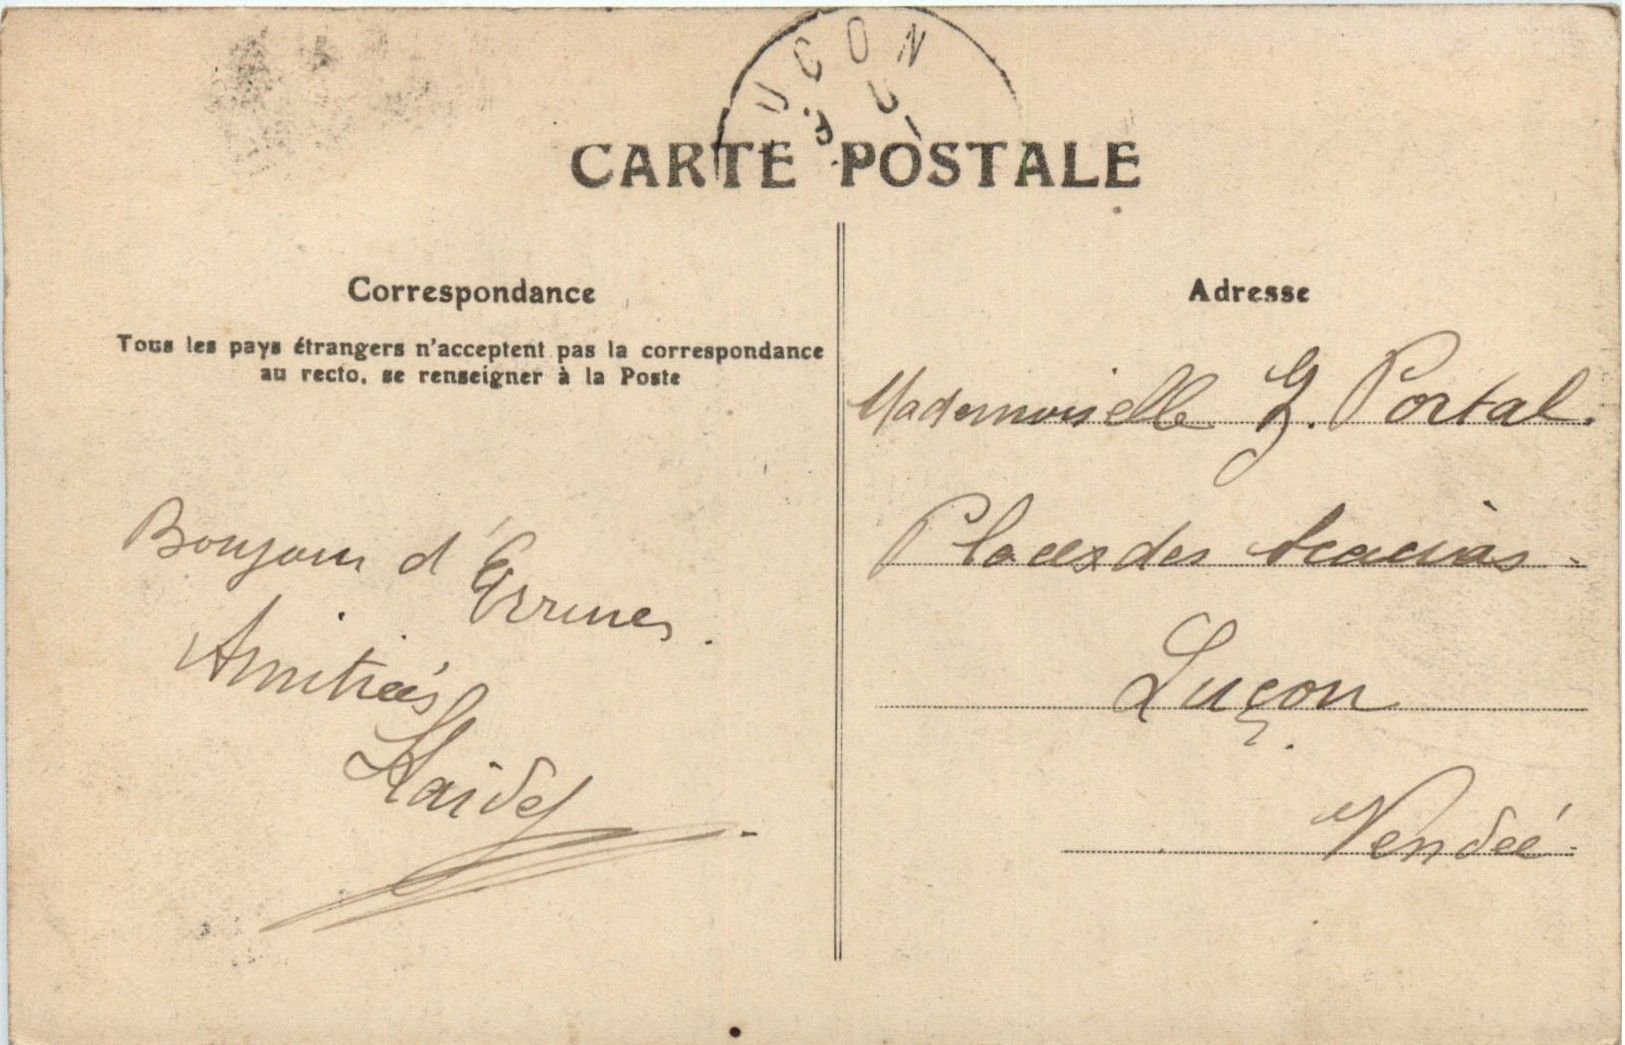 UCON
CARTE POSTALE
Correspondance
Tous les pays étrangers n'acceptent pas la correspondance
au recto, se renseigner à la Poste
Bonjour d'
Amitiés
Adresse
Mademoiselle G. Portal.
Place des Acacias
Luçon.
Vendée